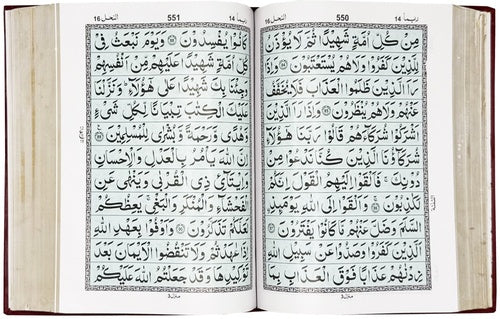 ربما ١٤
550
النحل ١٦
مِنْ كُلِّ اُمَّةٍ شَهِيْدًا ثُمَّ لَا يُؤْذَنُ
لِلَّذِيْنَ كَفَرُوْا وَلَا هُمْ يُسْتَعْتَبُوْنَ ﴿٨٤﴾ وَاِذَا
رَاَ الَّذِيْنَ ظَلَمُوا الْعَذَابَ فَلَا يُخَفَّفُ
عَنْهُمْ وَلَا هُمْ يُنْظَرُوْنَ ﴿٨٥﴾ وَاِذَا رَاَ الَّذِيْنَ
اَشْرَكُوْا شُرَكَآءَهُمْ قَالُوْا رَبَّنَا هٰٓؤُلَآءِ
شُرَكَآؤُنَا الَّذِيْنَ كُنَّا نَدْعُوْا مِنْ
دُوْنِكَ ۚ فَاَلْقَوْا اِلَيْهِمُ الْقَوْلَ اِنَّكُمْ
لَكٰذِبُوْنَ ﴿٨٦﴾ وَاَلْقَوْا اِلَى اللّٰهِ يَوْمَئِذِ
السَّلَمَ وَضَلَّ عَنْهُمْ مَّا كَانُوْا يَفْتَرُوْنَ ﴿٨٧﴾
اَلَّذِيْنَ كَفَرُوْا وَصَدُّوْا عَنْ سَبِيْلِ اللّٰهِ
زِدْنٰهُمْ عَذَابًا فَوْقَ الْعَذَابِ بِمَا
منزل ٣
ربما ١٤
551
النحل ١٦
كَانُوْا يُفْسِدُوْنَ ﴿٨٨﴾ وَيَوْمَ نَبْعَثُ فِيْ
كُلِّ اُمَّةٍ شَهِيْدًا عَلَيْهِمْ مِّنْ اَنْفُسِهِمْ
وَجِئْنَا بِكَ شَهِيْدًا عَلٰى هٰٓؤُلَآءِ ؕ وَنَزَّلْنَا
عَلَيْكَ الْكِتٰبَ تِبْيَانًا لِّكُلِّ شَيْءٍ
وَّهُدًى وَّرَحْمَةً وَّبُشْرٰى لِلْمُسْلِمِيْنَ ﴿٨٩﴾
اِنَّ اللّٰهَ يَاْمُرُ بِالْعَدْلِ وَالْاِحْسَانِ
وَاِيْتَآئِ ذِي الْقُرْبٰى وَيَنْهٰى عَنِ
الْفَحْشَآءِ وَالْمُنْكَرِ وَالْبَغْيِ ۚ يَعِظُكُمْ
لَعَلَّكُمْ تَذَكَّرُوْنَ ﴿٩٠﴾ وَاَوْفُوْا بِعَهْدِ اللّٰهِ
اِذَا عٰهَدْتُّمْ وَلَا تَنْقُضُوا الْاَيْمَانَ بَعْدَ
تَوْكِيْدِهَا وَقَدْ جَعَلْتُمُ اللّٰهَ عَلَيْكُمْ
منزل ٣